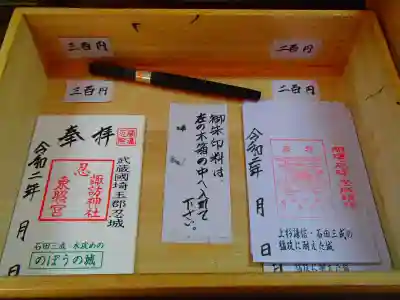 三百円
二百円
三百円
二百円
奉拝
開運
忍城
武蔵國埼玉郡忍城
忍
諏訪神社
東照宮
令和二年 月 日
石田三成・水攻めの
のぼうの城
御朱印料は、
左の木箱の中へ入れて
下さい。
令和二年 月 日
上杉謙信・石田三成の
猛攻に耐えた城